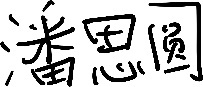 潘思圆